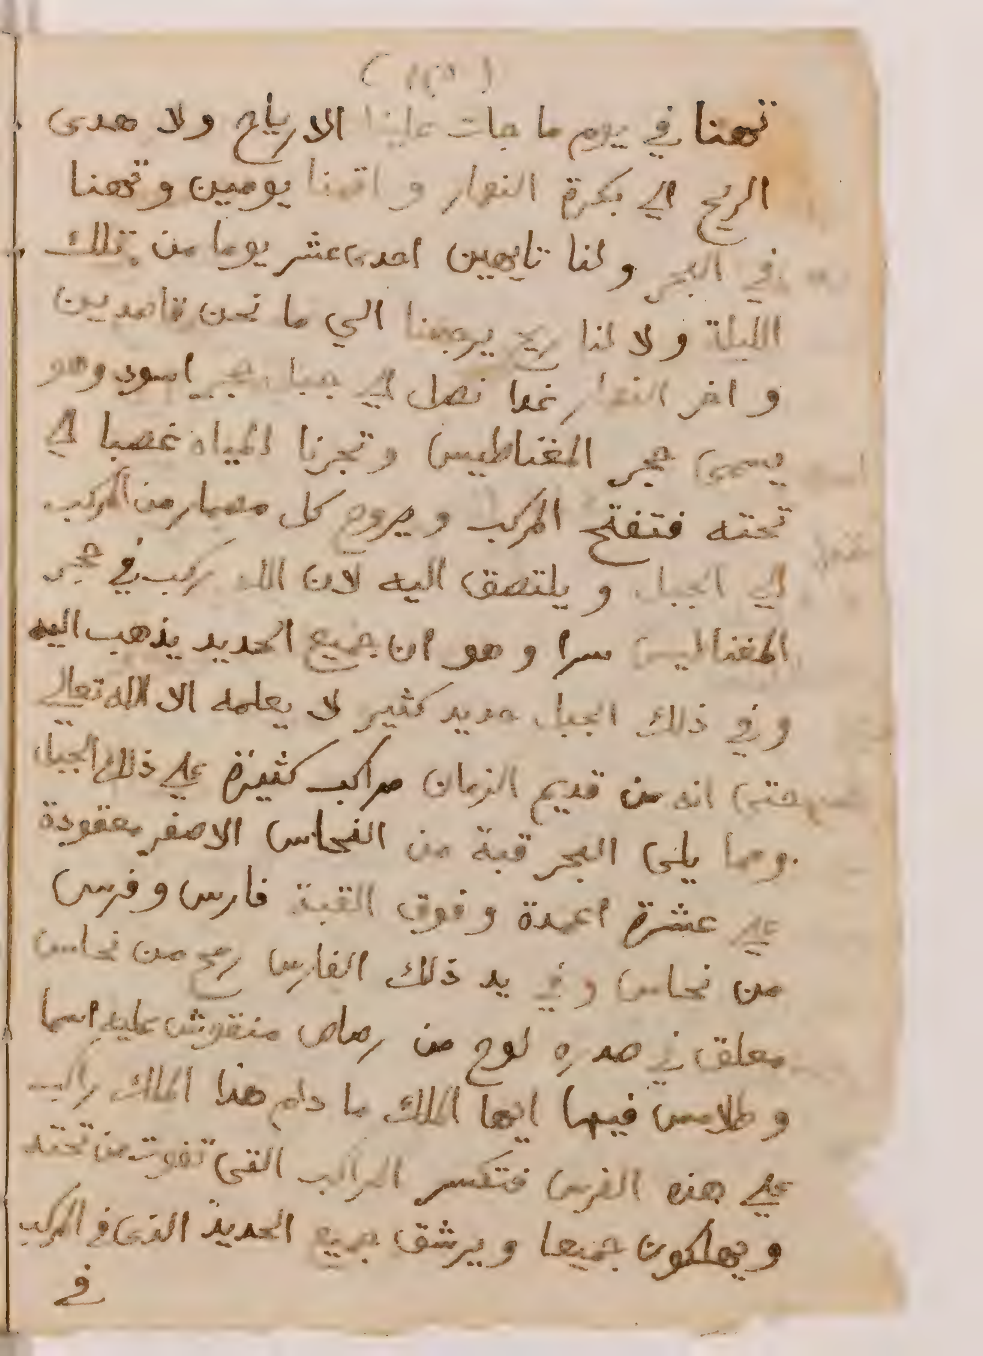 تهنا في يوم ما جات علينا الارياح ولا هدى
الريح الي بكرة النهار و اقمنا يومين وتهنا
في البحر ولنا تايهين احدى عشر يوما من تلك
الليلة ولا لنا ريح يرجعنا الي ما نحن قاصدين
و اخر النهار غدا نصل الي جبل حجر اسود وهو
يسمى حجر المغناطيس وتجرنا المياه غصبا الي
تحته فتفتح المركب ويروح كل مسمار من المركب
الي الجبل ويلتصق اليه لان الله ركب في حجر
المغناطيس سرا وهو ان جميع الحديد يذهب اليه
وفي ذلك الجبل حديد كثير لا يعلمه الا الله تعالي
حتى انه من قديم الزمان مراكب كثيرة علي ذلك الجبل
ومما يلى البحر قبة من النحاس الاصفر معقودة
علي عشرة اعمدة وفوق القبة فارس وفرس
من نحاس وفي يد ذلك الفارس رمح من نحاس
معلق في صدره لوح من رصاص منقوش عليه اسما
وطلامس فيها ايها الملك ما دام هذا الملك راكب
علي هذه الفرس فتكسر المراكب التى تفوت من تحته
ويهلكون جميعا ويرشق جميع الحديد الذى في المركب
في